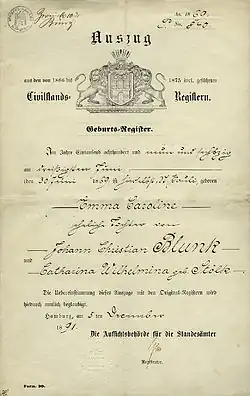 Auszug
aus den von 1866 bis 1875 incl. geführten
Civilstands- Registern.
Geburts-Register.
Im Jahre Eintausend achthundert und neun und sechszig
am dreißigsten Juni
(den 30 Juni 1869) geboren
Emma Caroline
eheliche Tochter von
Johann Christian Blunk
und Catharina Wilhelmina geb. Stölk
Die Uebereinstimmung dieses Auszugs mit den Original-Registern wird
hiedurch amtlich beglaubigt.
Hamburg, am 5 ten Dezember
1891.
Die Aufsichtsbehörde für die Standesämter
Registrator.
Form. 30.